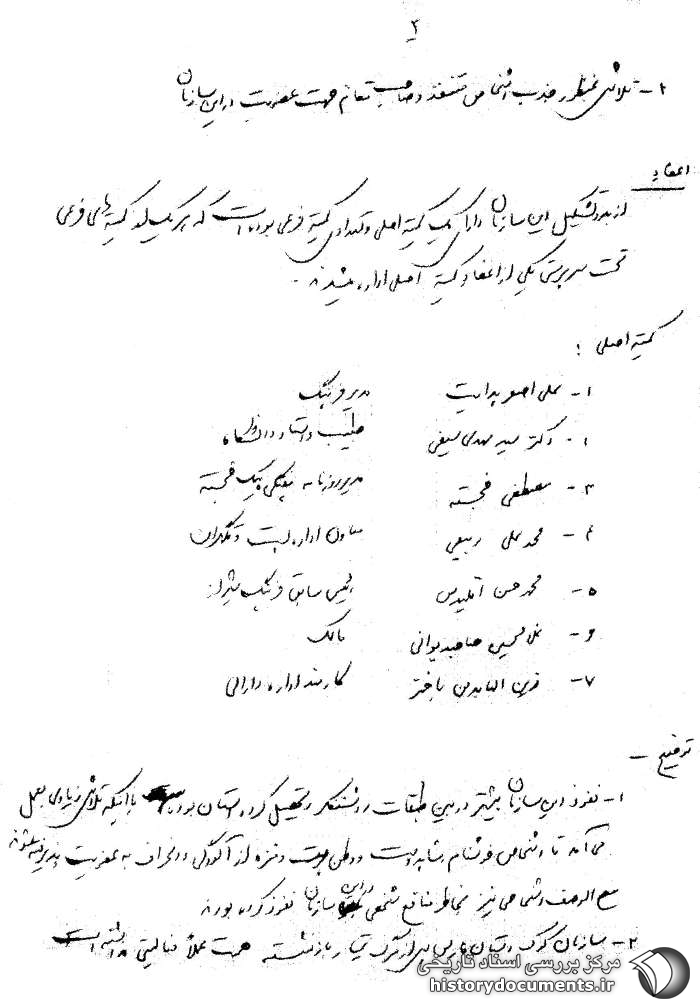 ۴
۲- تلاش بمنظور جذب اشخاص متنفذ و صاحب مقام جهت عضویت در این سازمان
اعضاء
از بدو تشکیل این سازمان دارای یک کمیته اصلی و تعدادی کمیته فرعی بوده است که هر یک از کمیته های فرعی
تحت سرپرستی یکی از اعضاء کمیته اصلی اداره میشدند.
کمیته اصلی :
۱- علی اصغر هدایت مدیر فرهنگ
۲- دکتر سید مهدی سیفی طبیب و استاد دانشگاه
۳- مصطفی خجسته مدیر روزنامه پیک خجسته
۴- محمد علی ربیعی معاون اداره پست و تلگراف
۵- محمد حسن اقلیدس رئیس سابق فرهنگ شیراز
۶- غلامحسین صاحبدیوانی مالک
۷- زین العابدین باختر کارمند اداره دارائی
توضیح -
۱- نفوذ این سازمان بیشتر در بین طبقات روشنفکر و تحصیل کرده استان بوده با اینکه تلاش زیادی بعمل
می آمد تا اشخاص خوشنام و وطن پرست و منزه از آلودگی و انحراف به عضویت پذیرفته شوند
مع الوصف اشخاصی نیز بخاطر منافع شخصی در این سازمان نفوذ کرده بودند
۲- سازمان کوک استان فارس بازنشسته عملاً فعالیتی نداشته است
مرکز بررسی اسناد تاریخی
historydocuments.ir